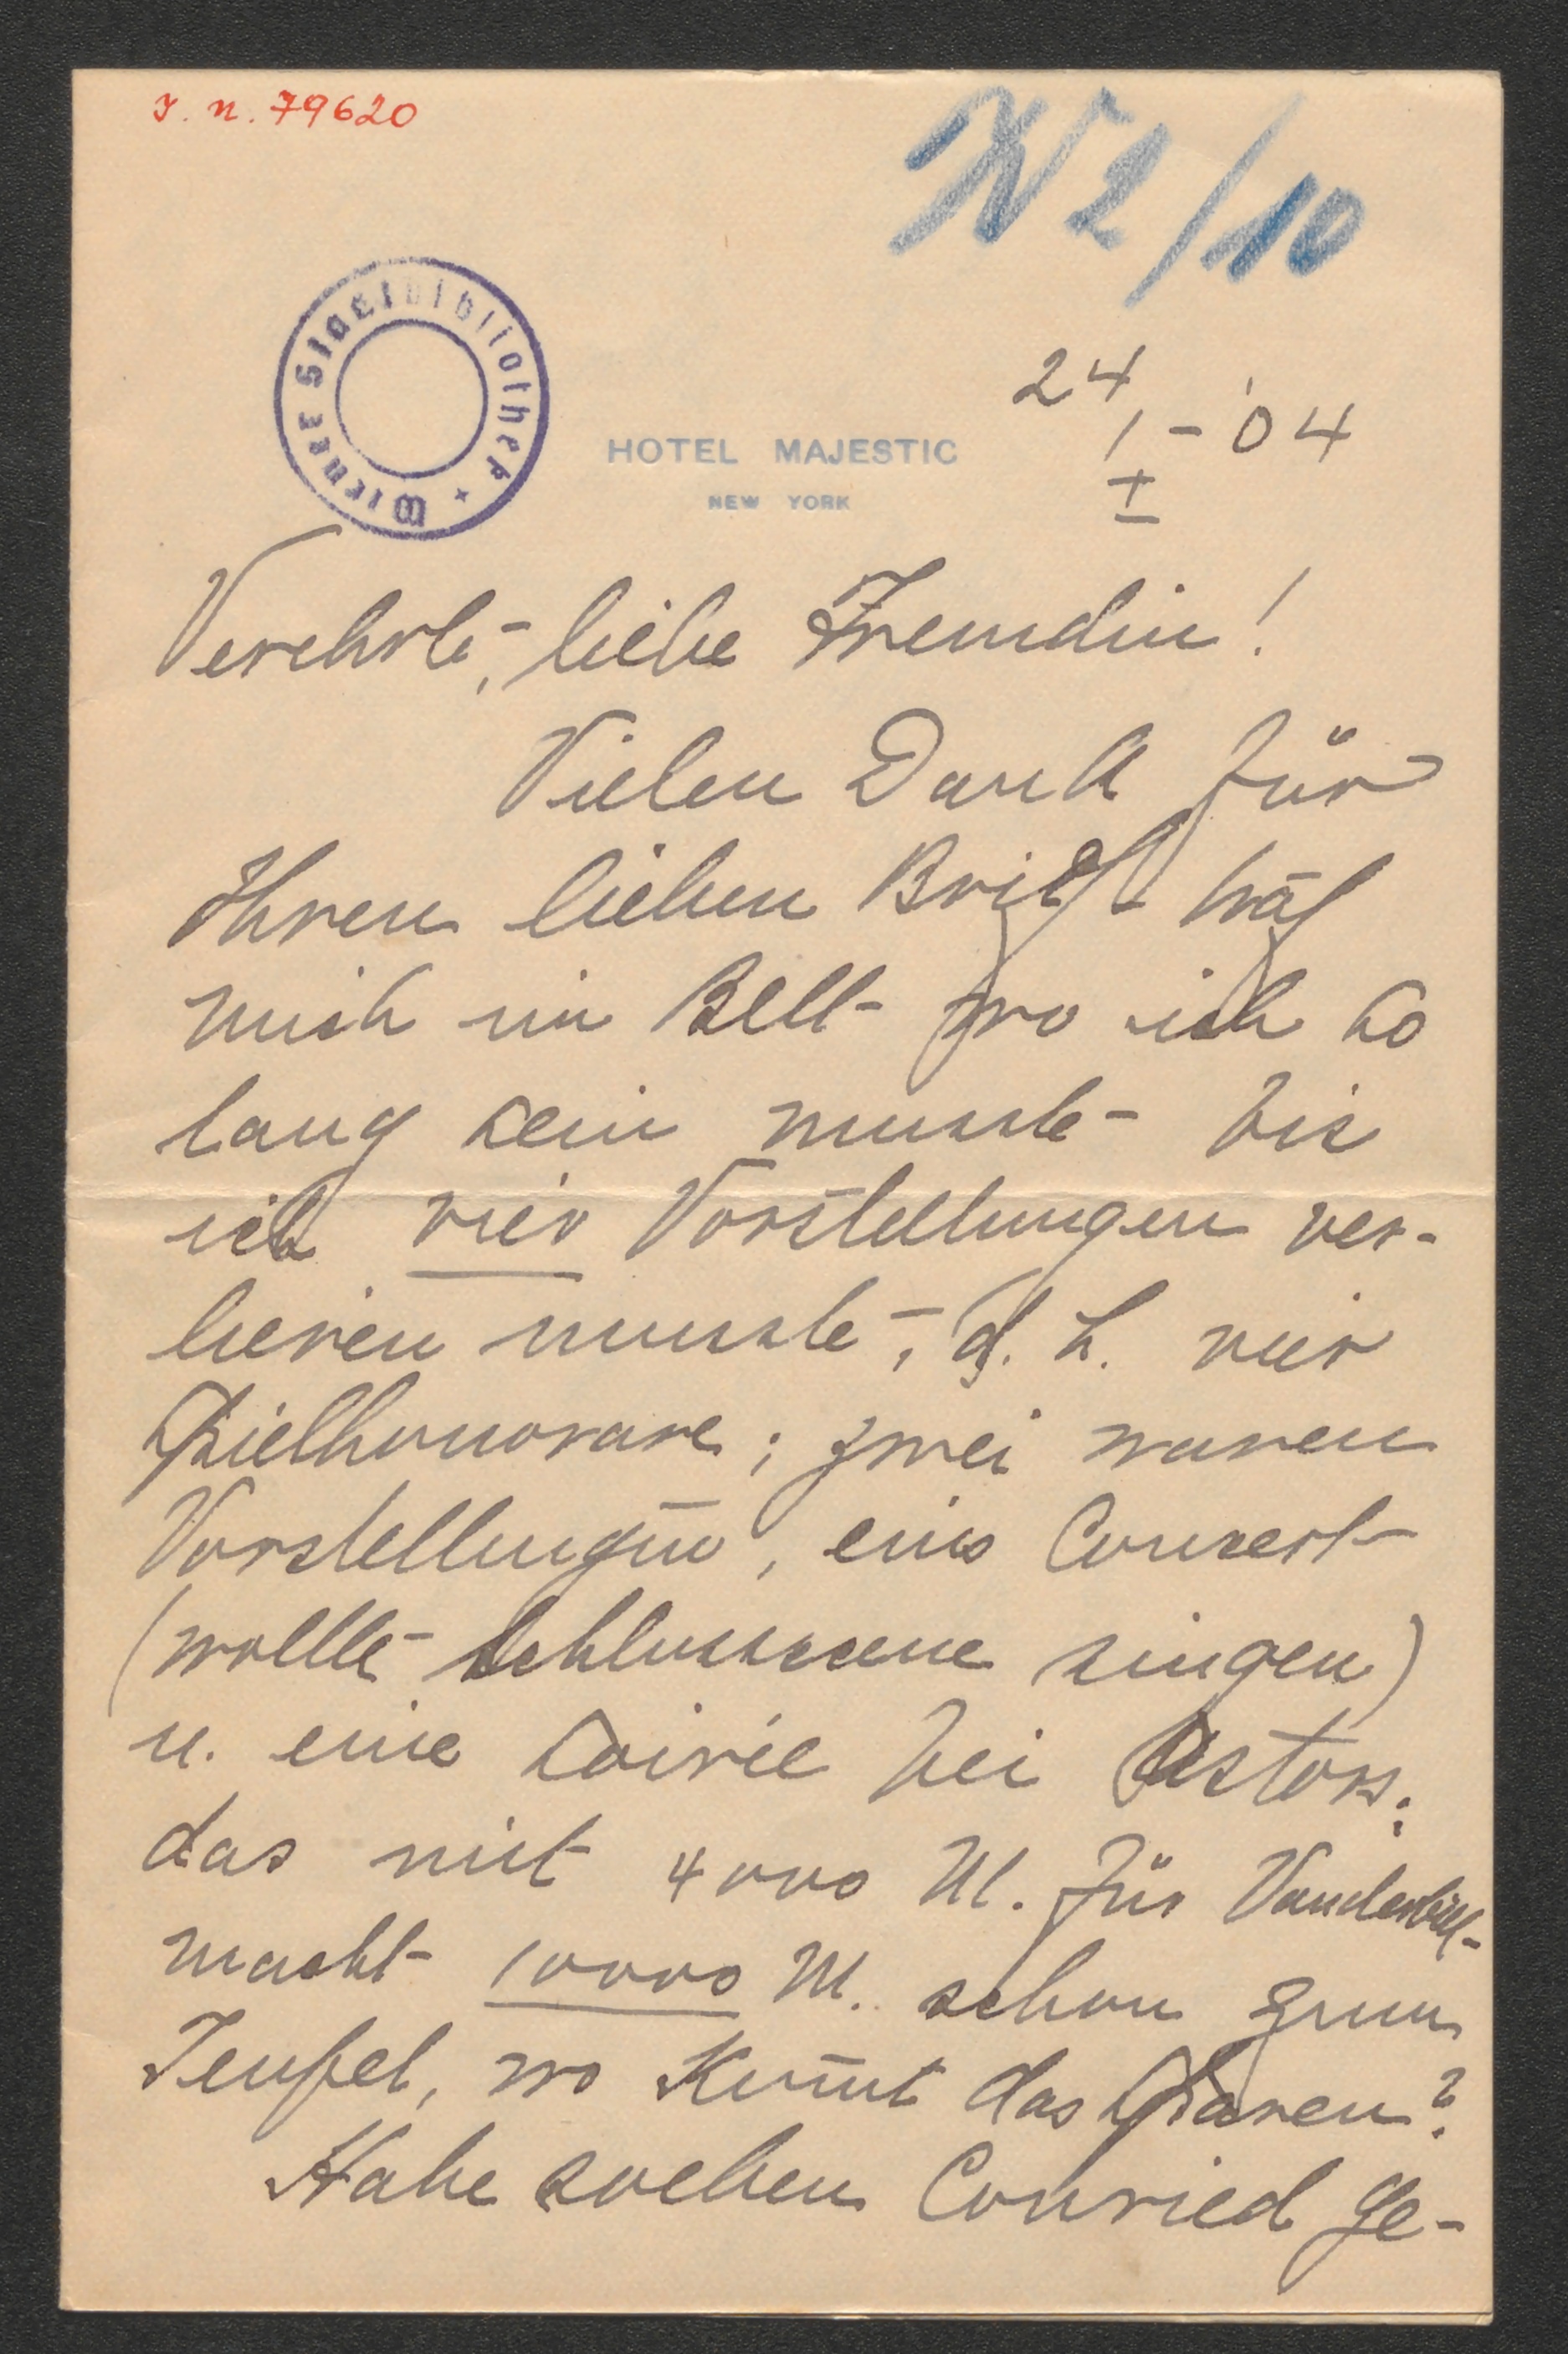 J. N. 79620
W 2/10
Wiener Stadtbibliothek +
24/I - '04
HOTEL MAJESTIC
NEW YORK
Verehrte, liebe Freundin!
Vielen Dank für
Ihren lieben Brief traf
mich im Bett wo ich so
lang sein musste bis
ich vier Vorstellungen ver-
lieren musste, d. h. vier
Spielhonorare; zwei waren
Vorstellungen, eins Concert
(wollte Schlussscene singen)
u. eine Soirée bei Astors;
das mit 4000 M. für Vanderbilt
macht 10000 M. schon zum
Teufel, wo kom̄t das Sparen?
Habe soeben Conried ge-